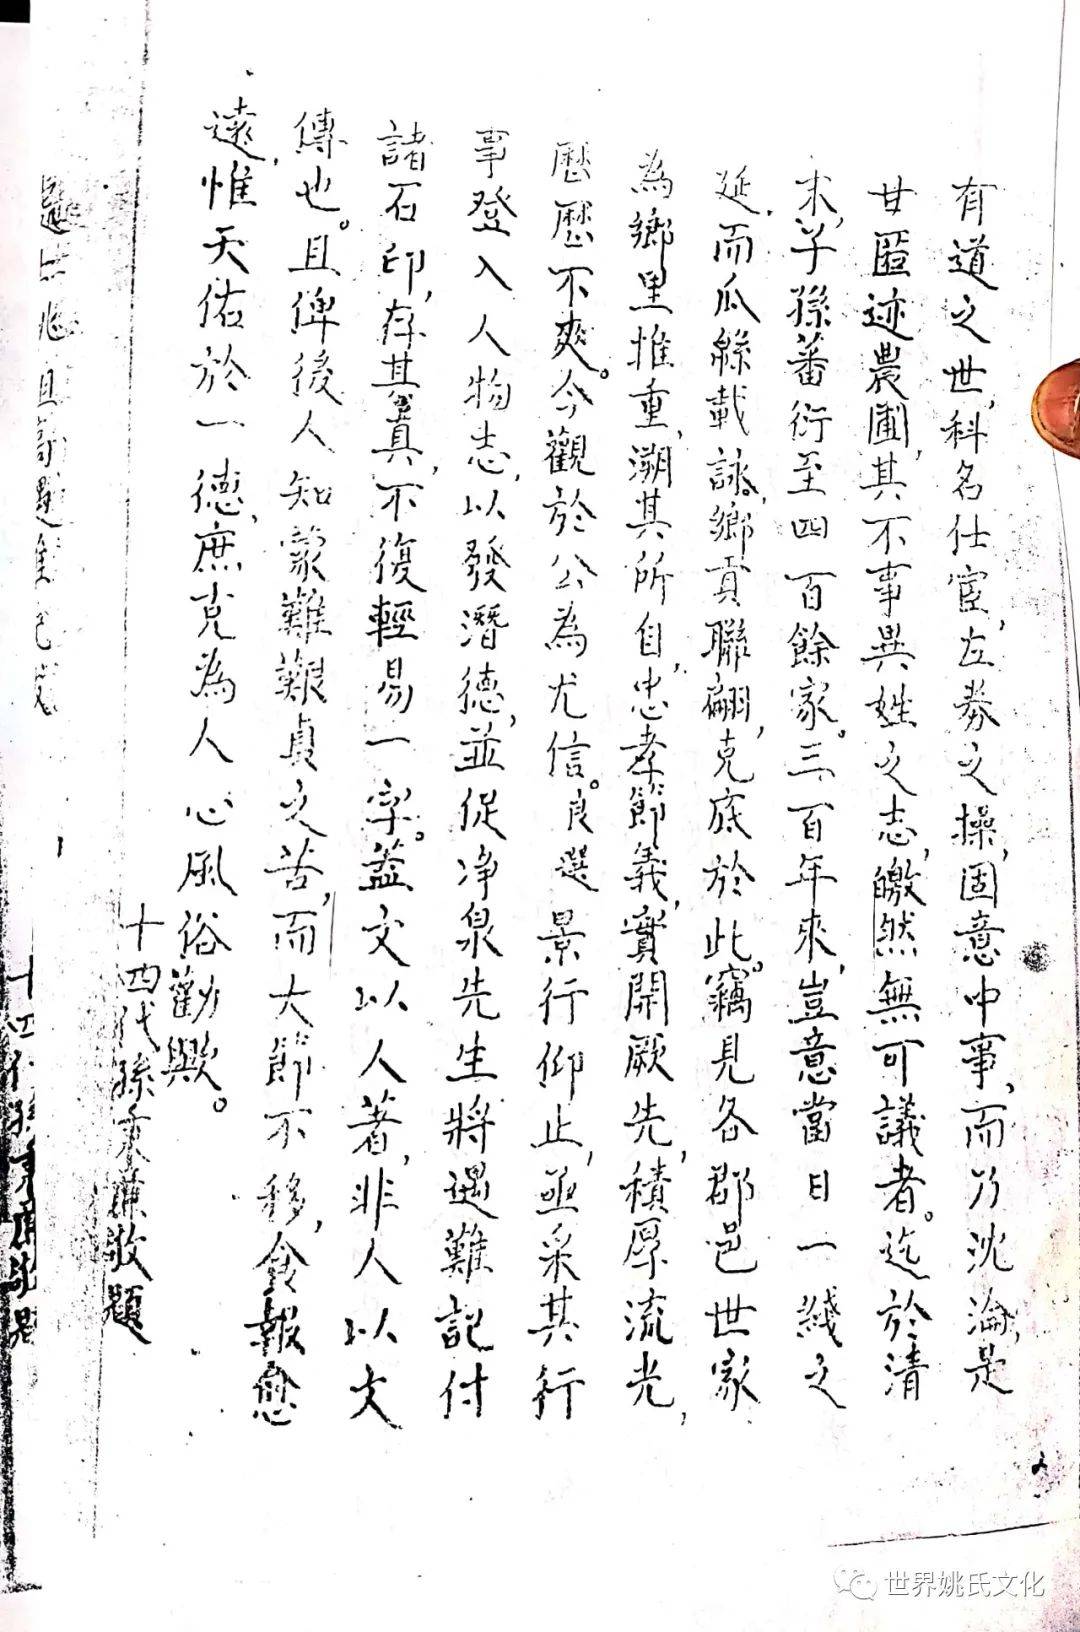 有道之世,科名仕宦,左券之操,固意中事,而乃沈淪,是
甘匿迹農圃,其不事異姓之志,皦然無可議者。迄於清
末,子孫蕃衍至四百餘家。三百年來,豈意當日一綫之
延,而瓜緜載詠,鄉貢聯翩,克底於此。竊見各郡邑世家
為鄉里推重,溯其所自,忠孝節義,實開厥先,積厚流光,
歷歷不爽。今觀於公為尤信。良選景行仰止,亟采其行
事登入人物志,以發潛德,並促净泉先生將遇難記付
諸石印,存其真,不復輕易一字。蓋文以人著,非人以文
傳也。且俾後人知蒙難艱貞之苦,而大節不移,食報愈
遠,惟天佑於一德,庶克為人心風俗勸歟。
十四代孫秉謙敬題
世界姚氏文化